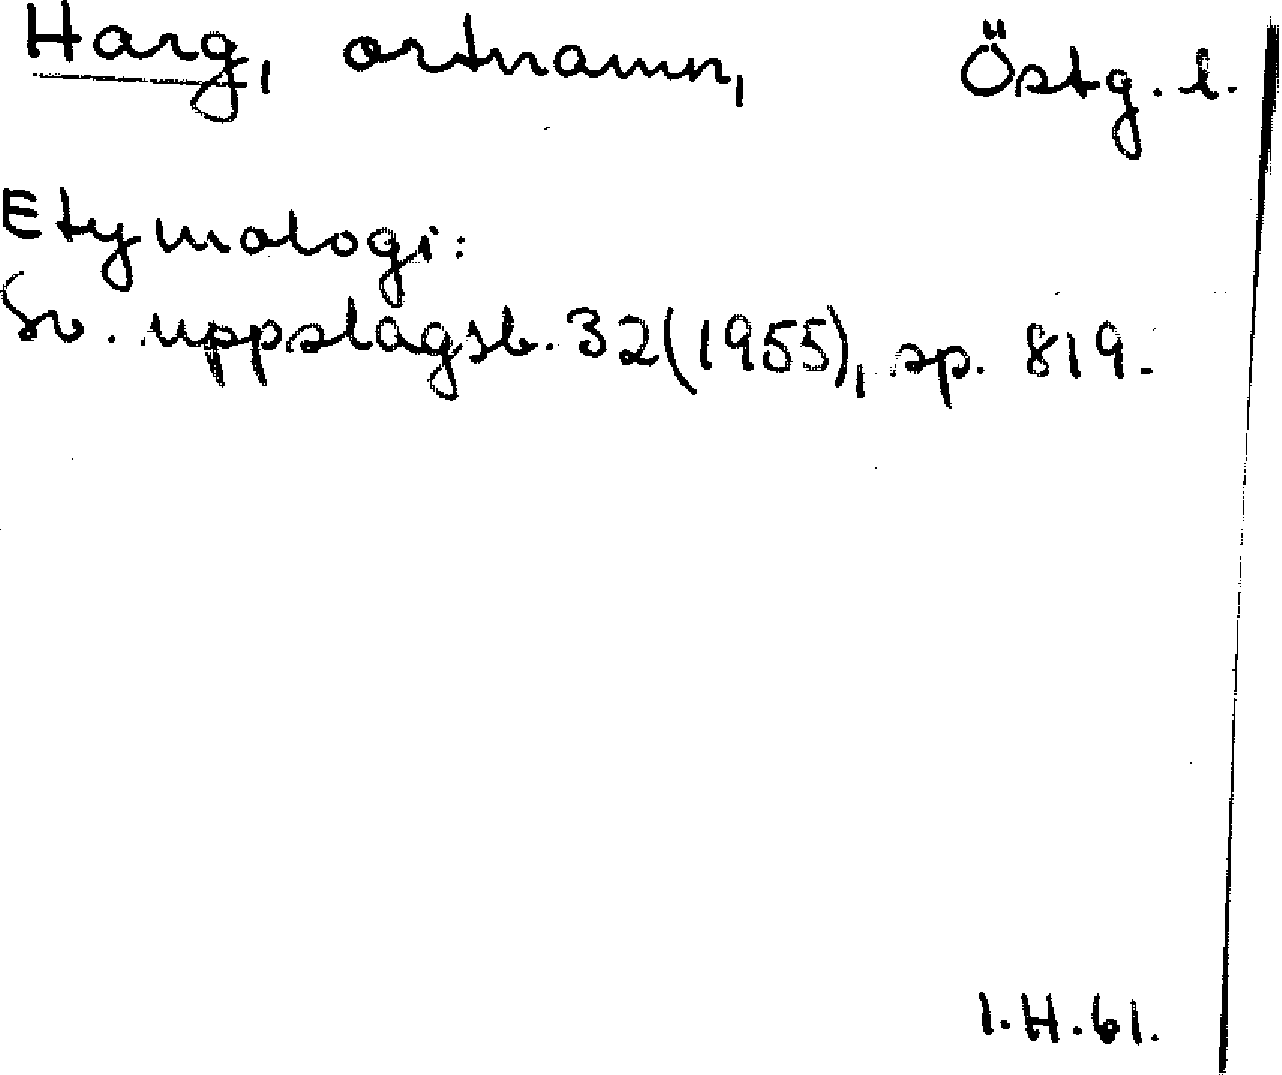 Harg, ortnamn, Östg. l.
Etymologi:
Sv. uppslagsb. 32(1955), sp. 819.
I.H.61.